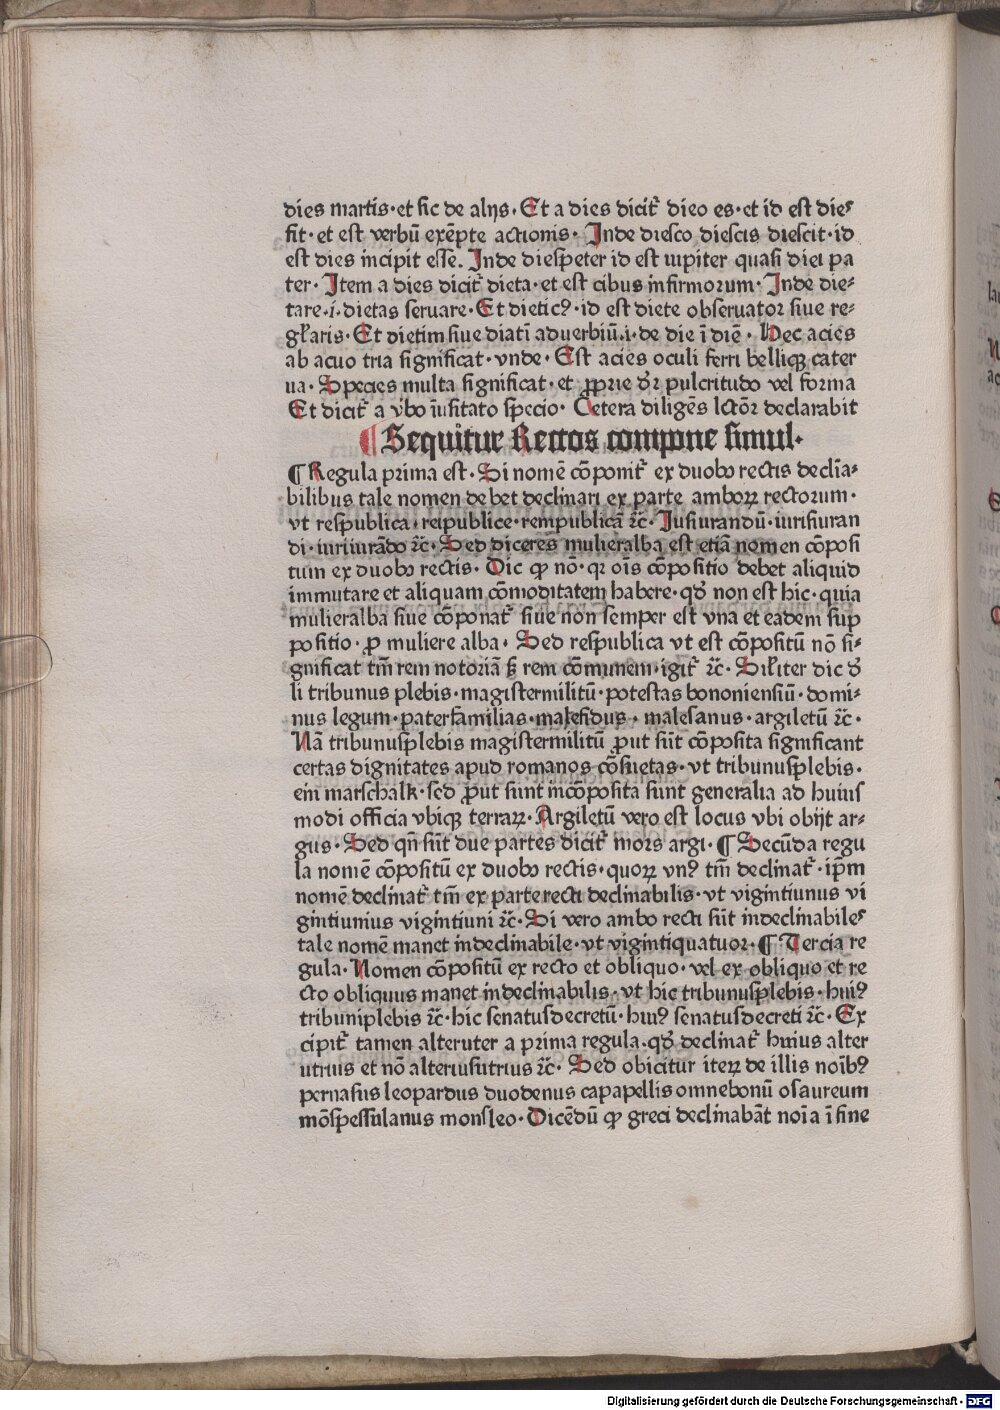 dies martis·et sic de alijs·Et a dies dicit᷑ dieo es·et id est dies
fit·et est verbū exēpte actionis· Inde diesco diescis diescit·id
est dies incipit esse. Inde diespeter id est iupiter quasi diei pa
ter· Item a dies dicit᷑ dieta·et est cibus infirmorum· Inde die-
tare·i·dietas seruare·Et dieticꝰ·id est diete obseruator siue re-
gl̄aris·Et dietim siue diatī aduerbiū.i·de die ī diē· Hec acies
ab acuo tria significat·vnde·Est acies oculi ferri belliqꝫ cater
ua·Species multa significat·et ꝓprie dr̄ pulcritudo vel forma
Et dicit᷑ a v̄bo īusitato specio· Cetera diligēs lc̄tor declarabit
¶ Sequitur Rectos compone simul·
¶ Regula prima est·Si nomē cōponit᷑ ex duobꝰ rectis declīa-
bilibus tale nomen debet declinari ex parte amboꝝ rectorum·
vt respublica·reipublice·rempublicā ꝛc̄· Iusiurandū·iurisiuran
di·iuriiurādo ꝛc̄·Sed diceres mulieralba est etiā nomen cōposi
tum ex duobꝰ rectis· Dic ꝙ nō·qꝛ oīs cōpositio debet aliquid
immutare et aliquam cōmoditatem habere·qd̄ non est hic·quia
mulieralba siue cōponat᷑ siue non semper est vna et eadem sup
positio·ꝓ muliere alba· Sed respublica vt est cōpositū nō si-
gnificat tm̄ rem notoriā sꝫ rem cōmunem·igit᷑ ꝛc̄·Sil̄iter dic d̄
li tribunus plebis·magistermilitū·potestas bononiensiū·domi-
nus legum·paterfamilias·malefidus·malesanus·argiletū ꝛc̄·
Nā tribunusplebis magistermilitū ꝓut sūt cōposita significant
certas dignitates apud romanos cōsuetas·vt tribunusplebis·
ein marschalk·sed ꝓut sunt incōposita sunt generalia ad huius
modi officia vbiqꝫ terraꝝ·Argiletū vero est locus vbi obijt ar-
gus·Sed qn̄ sūt due partes dicit᷑ mors argi·¶ Secūda regu
la nomē cōpositū ex duobꝰ rectis·quoꝝ vnꝰ tm̄ declinat᷑·ip̄m
nomē declinat᷑ tm̄ ex parte recti declinabilis·vt vigintiunus vi
gintiunius vigintiuni ꝛc̄·Si vero ambo recti sūt indeclinabiles
tale nomē manet indeclinabile·vt vigintiquatuor·¶ Tercia re
gula·Nomen cōpositū ex recto et obliquo·vel ex obliquo et re
cto obliquus manet indeclinabilis·vt hic tribunusplebis·huiꝰ
tribuniplebis ꝛc̄·hic senatusdecretū·huiꝰ senatusdecreti ꝛc̄·Ex
cipit᷑ tamen alteruter a prima regula.qd̄ declinat᷑ huius alter
utrius et nō alteriusutrius ꝛc̄· Sed obicitur iteꝝ de illis noībꝰ
pernasus leopardus duodenus capapellis omnebonū osaureum
mōspessulanus monsleo·Dicēdū ꝙ greci declinabāt noīa ī fine
Digitalisierung gefördert durch die Deutsche Forschungsgemeinschaft - DFG